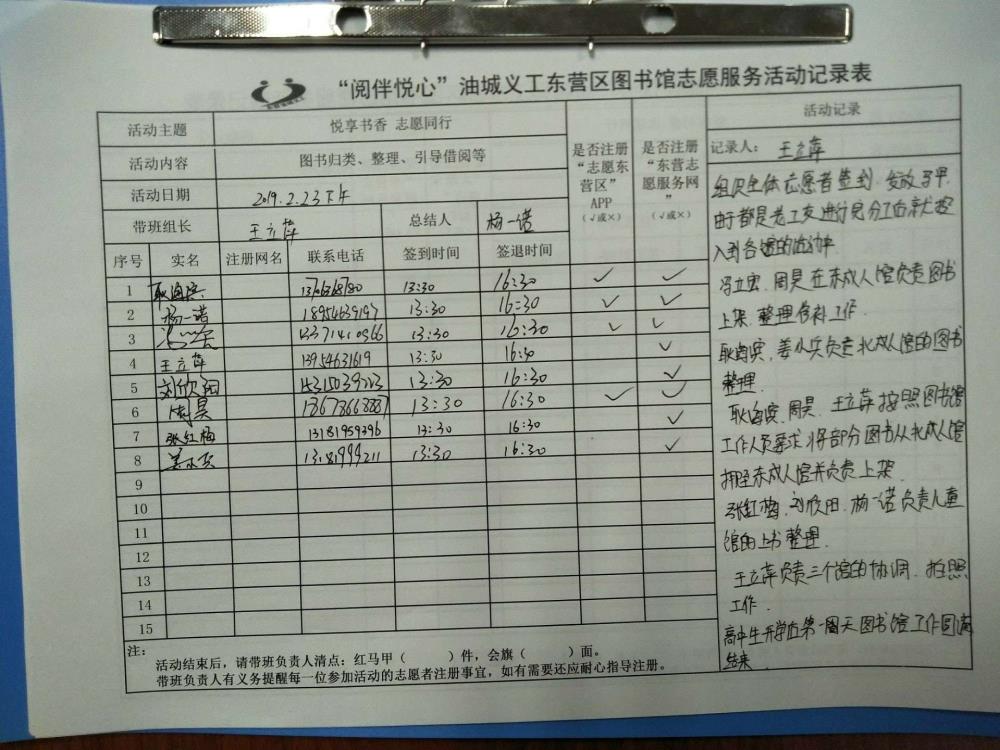 “阅伴悦心”油城义工东营区图书馆志愿服务活动记录表
活动主题 悦享书香 志愿同行
活动内容 图书归类、整理、引导借阅等
活动日期 2019.2.23下午
带班组长 王立萍 总结人 杨一诺
是否注册“志愿东营区”APP（√或×）
是否注册“东营志愿服务网”（√或×）
序号 实名 注册网名 联系电话 签到时间 签退时间
1 耿海滨 13:30 16:30 √ √
2 杨一诺 18954639197 13:30 16:30 √ √
3 13:30 16:30 √ √
4 王立萍 13954631619 13:30 16:30 √
5 刘欣阳 13:30 16:30 √
6 周昊 13:30 16:30 √ √
7 张红梅 13181959396 13:30 16:30 √
8 姜小兵 13181999211 13:30 16:30 √
9
10
11
12
13
14
15
注：
活动结束后，请带班负责人清点：红马甲（ ）件，会旗（ ）面。
带班负责人有义务提醒每一位参加活动的志愿者注册事宜，如有需要还应耐心指导注册。
活动记录
记录人： 王立萍
组织全体志愿者签到.发放马甲.
由于都是老工友进行完分工后就投
入到各馆的活动中.
冯立宏、周昊在东成人馆负责图书
上架.整理.工作.
耿海滨，姜小兵负责北成人馆的图书
整理.
耿海滨.周昊.王立萍按照图书馆
工作人员要求将部分图书从北成人馆
东成人馆并负责上架.
张红梅.刘欣阳.杨一诺负责儿童
馆的上书整理.
王立萍负责三个馆的协调.拍照
工作.
高中生开学后第一周天图书馆工作圆满
结束.